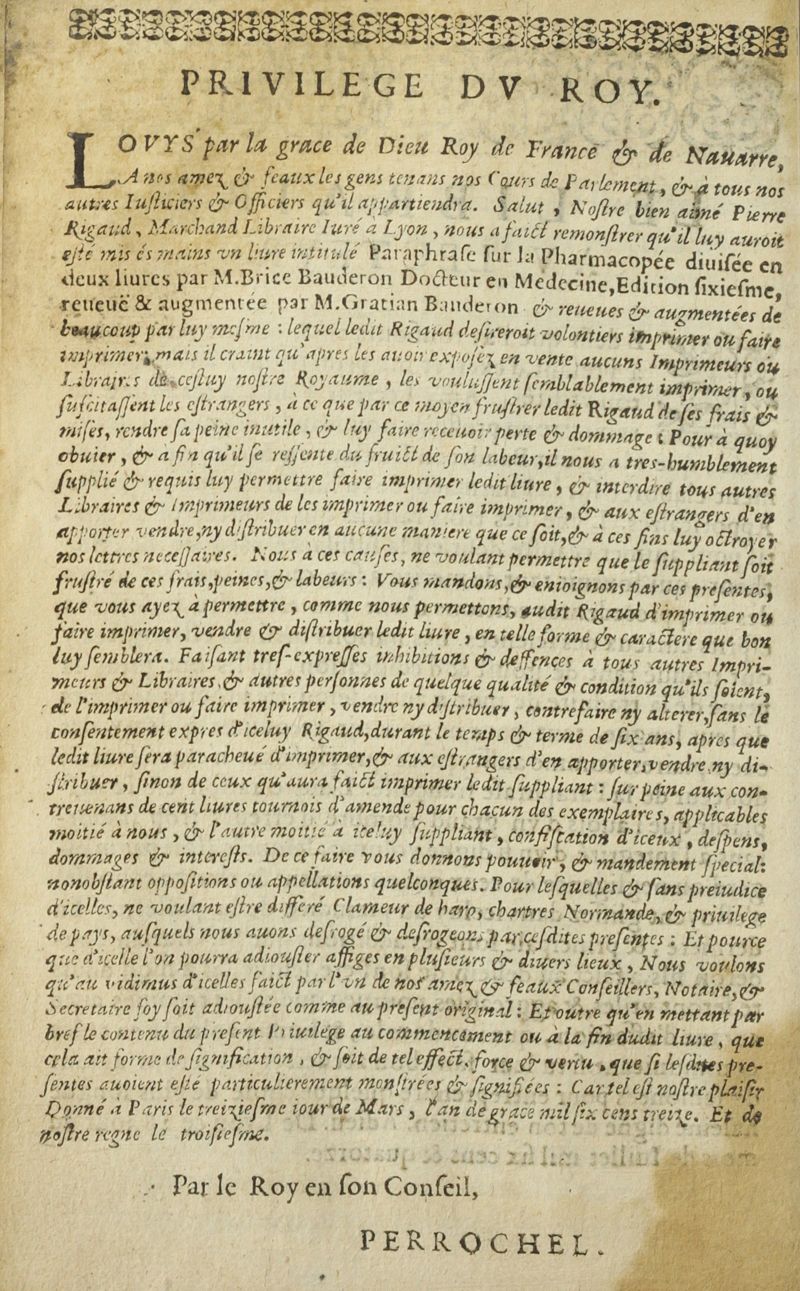 PRIVILEGE DV ROY.
LOVYS par la grace de Dieu Roy de France & de Nauarre,
A nos amez & feaux les gens tenans nos Cours de Parlement, & à tous nos
autres Iusticiers & Officiers qu'il appartiendra. Salut, Nostre bien aimé Pierre
Rigaud, Marchand Libraire Iuré a Lyon, nous a faict remonstrer qu'il luy auroit
esté mis és mains vn liure intitulé Paraphrase sur la Pharmacopée diuisée en
deux liures par M.Brice Bauderon Docteur en Medecine,Edition sixiesme,
reueuë & augmentée par M.Gratian Bauderon & reueues & augmentées de
beaucoup par luy mesme : lequel ledit Rigaud desireroit volontiers imprimer ou faire
imprimer, mais il craint qu'apres les auoir exposez en vente aucuns Imprimeurs ou
Libraires de cestuy nostre Royaume, les voulussent semblablement imprimer, ou
suscitassent les estrangers, à ce que par ce moyen frustrer ledit Rigaud de ses frais &
mises, rendre sa peine inutile, & luy faire receuoir perte & dommage : Pour à quoy
obuier, & a fin qu'il se ressente du fruict de son labeur,il nous a tres-humblement
supplié & requis luy permettre faire imprimer ledit liure, & interdire tous autres
Libraires & Imprimeurs de les imprimer ou faire imprimer, & aux estrangers d'en
apporter vendre,ny distribuer en aucune maniere que ce soit,& à ces fins luy octroyer
nos lettres necessaires. Nous a ces causes, ne voulant permettre que le suppliant soit
frustré de ces frais,peines,& labeurs : Vous mandons,& enioignons par ces presentes,
que vous ayez à permettre, comme nous permettons, audit Rigaud d'imprimer ou
faire imprimer, vendre & distribuer ledit liure, en telle forme & caractere que bon
luy semblera. Faisant tres-expresses inhibitions & deffences à tous autres Impri-
meurs & Libraires,& autres personnes de quelque qualité & condition qu'ils soient,
de l'imprimer ou faire imprimer, vendre ny distribuer, contrefaire ny alterer,sans le
consentement expres d'iceluy Rigaud,durant le temps & terme de six ans, apres que
ledit liure sera paracheué d'imprimer,& aux estrangers d'en apporter,vendre,ny di-
stribuer, sinon de ceux qu'aura faict imprimer ledit suppliant : sur peine aux con-
treuenans de cent liures tournois d'amende pour chacun des exemplaires, applicables
moitié à nous, & l'autre moitié a iceluy suppliant, confiscation d'iceux, despens,
dommages & interests. De ce faire vous donnons pouuoir, & mandement special:
nonobstant oppositions ou appellations quelconques. Pour lesquelles & sans preiudice
d'icelles, ne voulant estre differé Clameur de haro, chartres Normande, & priuilege
de pays, ausquels nous auons desrogé & desrogeons par,cesdites presentes : Et pource
que d'icelle l'on pourra adiouster affiges en plusieurs & diuers lieux, Nous voulons
qu'au vidimus d'icelles faict par l'vn de nos amez & feaux Conseillers, Notaire,&
Secretaire foy soit adioustée comme au present original : Et outre qu'en mettant par
bref le contenu du present Priuilege au commencement ou à la fin dudit liure, que
cela ait forme de signification, & soit de tel effect, force & vertu, que si lesdites pre-
sentes auoient esté particulierement monstrées & signifiées : Car tel est nostre plaisir
Donné à Paris le treiziesme iour de Mars, l'an de grace mil six cens treize. Et de
nostre regne le troisiesme.
Par le Roy en son Conseil,
PERROCHEL.